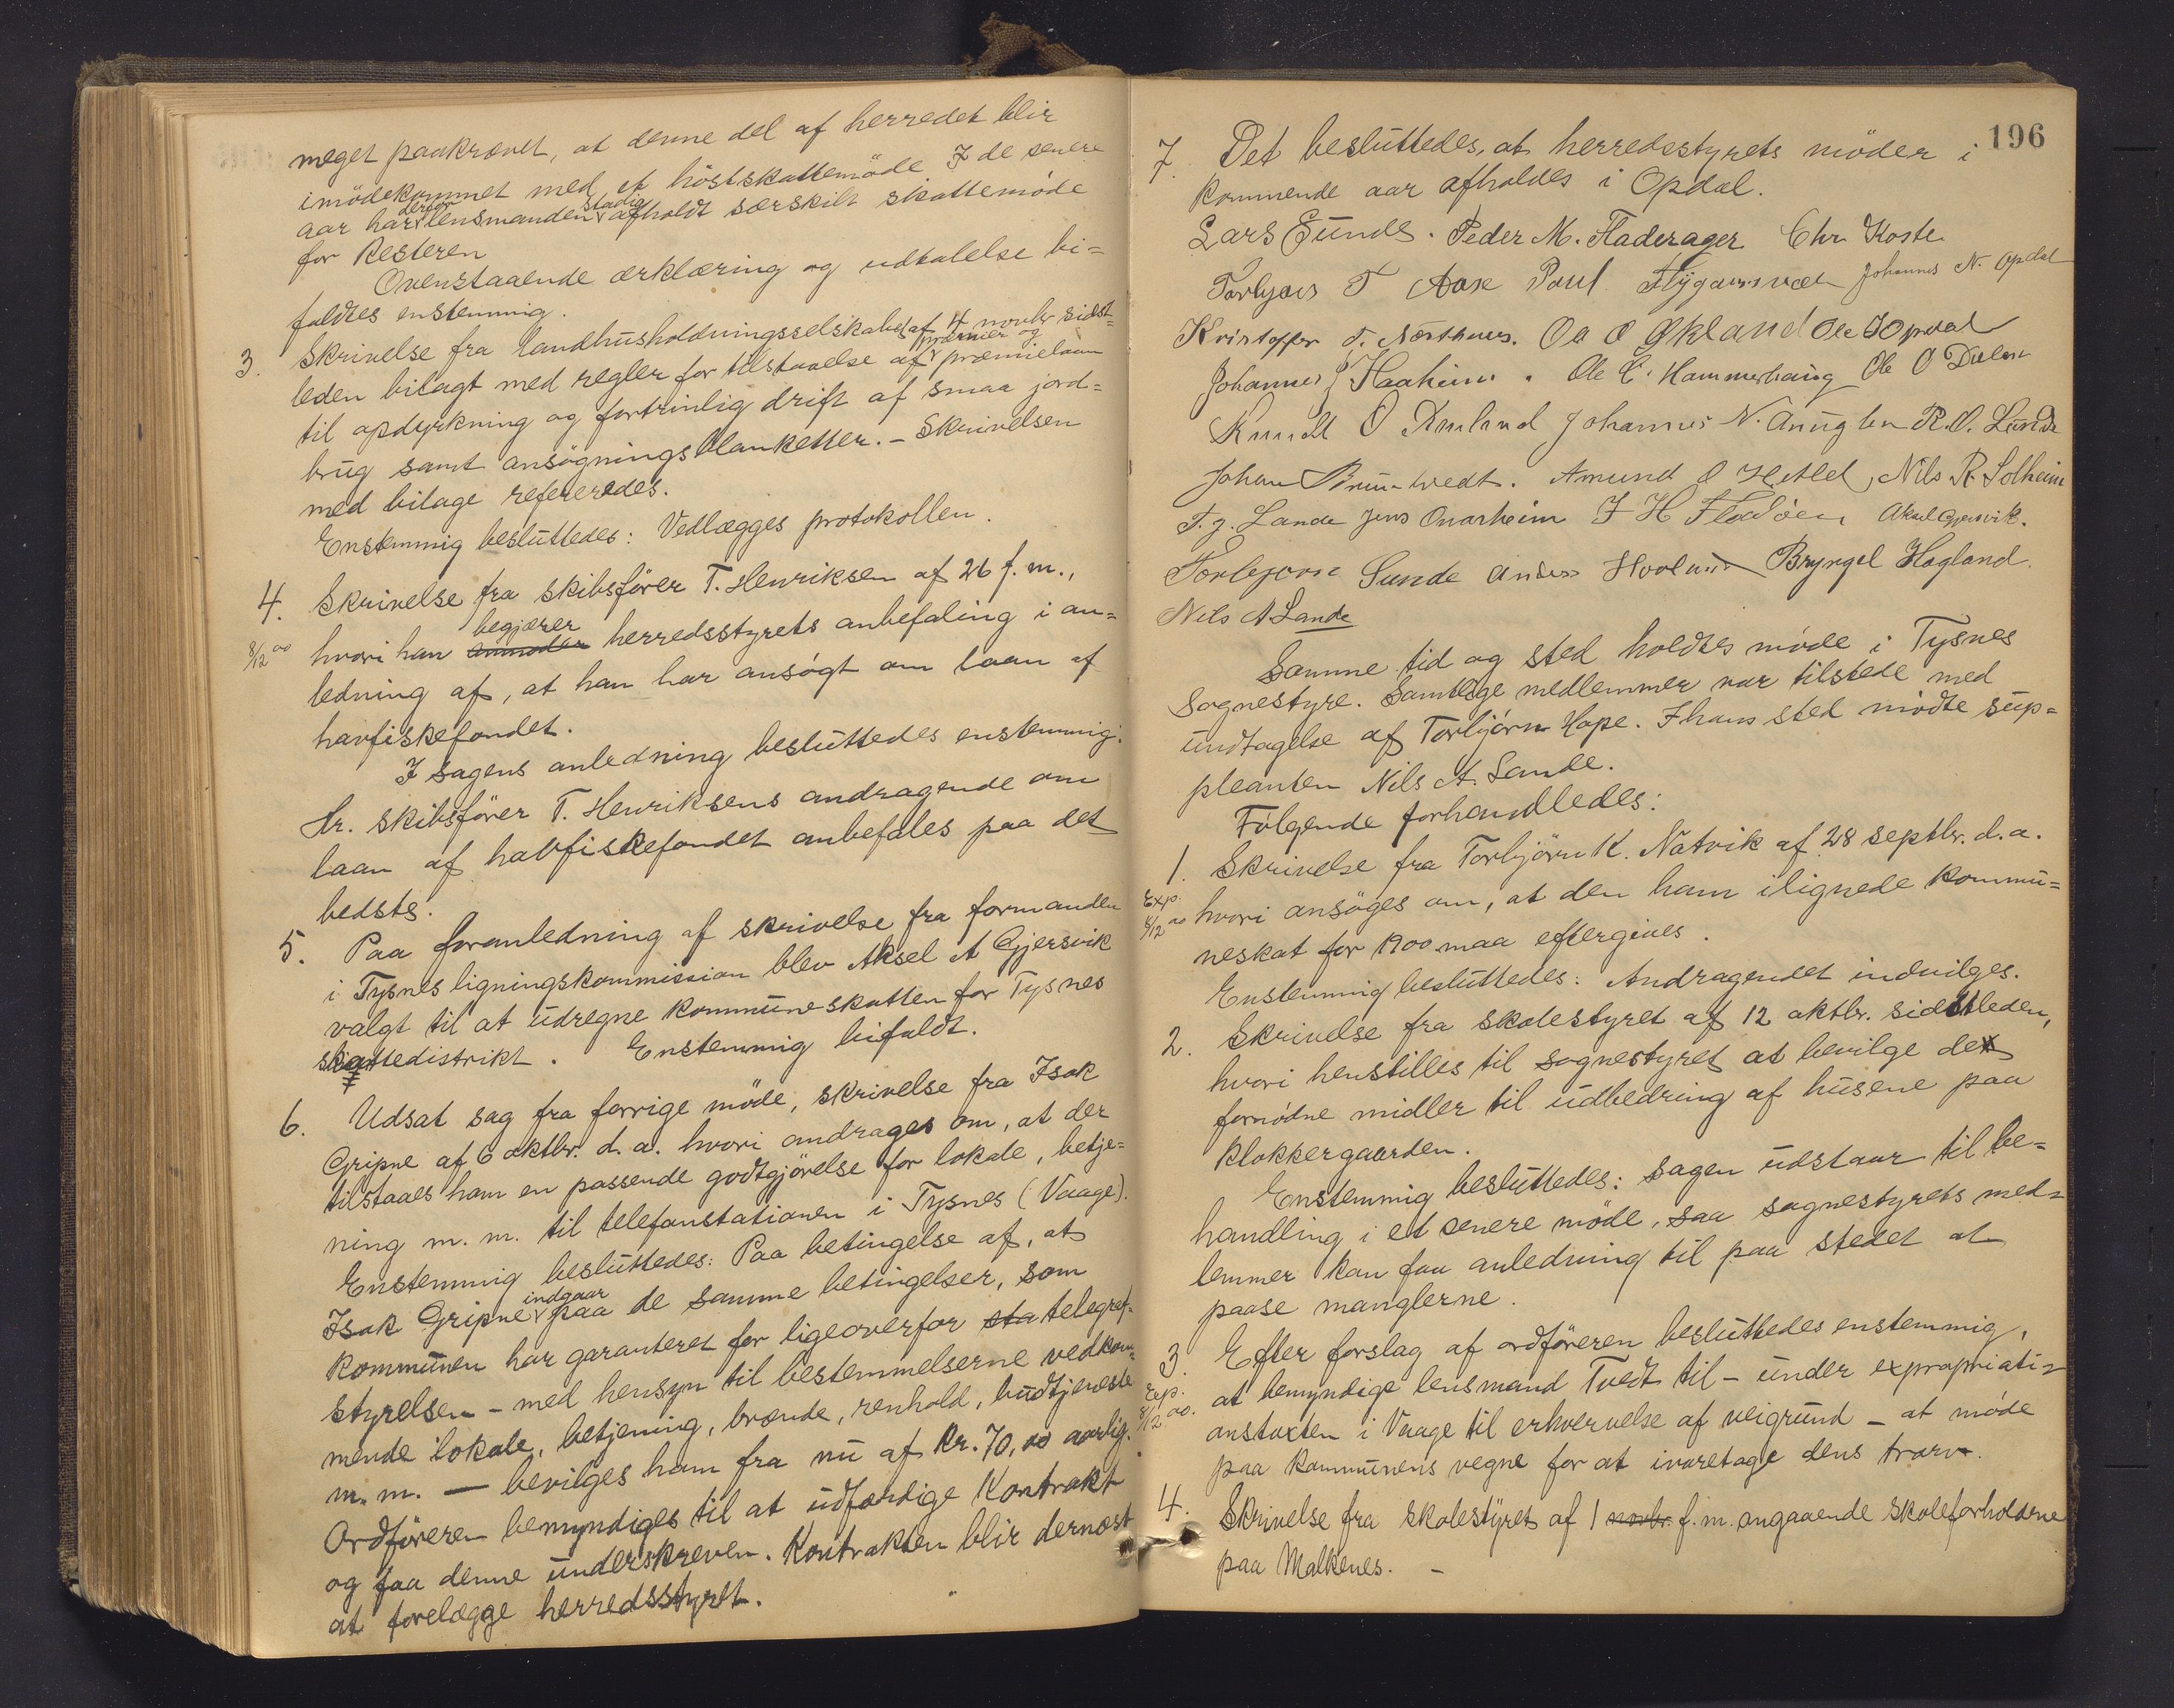 meget paakrævet, at denne del af herredet blir
imödekommet med et höstskattemöde. I de senere
aar har derfor lensmanden stadig afholdt særskilt skattemöde
for Resteren
Ovenstaaende erklæring og udtalelse bi=
faldtes enstemmig.
3. Skrivelse fra landhusholdningsselskabet af 4 novbr sidst=
leden bilagt med regler for tilstaaelse af præmier og præmielaan
til opdyrkning og fortrinlig drift af smaa jord=
brug samt ansögningsblanketter. – Skrivelsen
med bilage refereredes.
Enstemmig besluttedes: Vedlægges protokollen.
4. Skrivelse fra skibsförer T. Henriksen af 26 f. m.,
8/12 00 hvori han anmoder begjærer herredsstyrets anbefaling i an=
ledning af, at han har ansögt om laan af
havfiskefondet.
I sagens anledning besluttedes enstemmig:
Hr. skibsförer T. Henriksens andragende om
laan af havfiskefondet anbefales paa det
bedste.
5. Paa foranledning af skrivelse fra formanden
i Tysnes ligningskommission blev Aksel A Gjersvik
valgt til at udregne kommuneskatten for Tysnes
skattedistrikt. Enstemmig bifaldt.
6. Udsat sag fra forrige möde, skrivelse fra Isak
Gripne af 6 oktbr. d. a. hvori andrages om, at der
tilstaaes ham en passende godtgjörelse for lokale, betje=
ning m. m. til telefonstationen i Tysnes (Vaage).
Enstemmig besluttedes: Paa betingelse af, at
Isak Gripne indgaar paa de samme betingelser, som
kommunen har garanteret for ligeoverfor sta telegraf=
styrelsen – med hensyn til bestemmelserne vedkom=
mende lokale, betjening, brænde, renhold, budtjeneste
m. m. — bevilges ham fra nu af Kr. 70,00 aarlig.
Ordföreren bemyndiges til at udfærdige Kontrakt
og faa denne underskreven. Kontrakten blir dernæst
at forelægge herredsstyret.
196
7. Det besluttedes, at herredsstyrets möder i
kommende aar afholdes i Opdal.
Lars Sunde. Peder M. Fladerager Chr Koste
Torbjørn T Aase Poul Flygansvær Johannes N. Opdal
Kristoffer T. Næsthaus. Oa O Økland Ole J Opdal
Johannes J Haaheim. Ole C. Hammerhaug Ole O Dalen
Knudt O Amland Johannes N. Anuglen R. O. Lunde
Johan Bruntvedt. Amund O Hetlel, Nils R. Solheim
T. J. Lande Jens Onarheim J H Flodøen Aksel Gjersvik.
Torbjørn Sunde Anders Hovland Bryngel Hagland.
Nils A Lande
Samme tid og sted holdtes möde i Tysnes
Sognestyre. Samtlige medlemmer var tilstede med
undtagelse af Torbjörn Hope. I hans sted mödte sup=
pleanten Nils A. Lande.
Fölgende forhandledes:
1. Skrivelse fra Torbjörn K. Natvik af 28 septbr. d. a.
Exp. 8/12 00 hvori ansöges om, at den ham ilignede kommu=
neskat for 1900 maa eftergives.
Enstemmig besluttedes: Andragendet indvilges.
2. Skrivelse fra skolestyret af 12 oktbr. sidstleden,
hvori henstilles til sognestyret at bevilge de
fornödne midler til udbedring af husene paa
klokkergaarden.
Enstemmig besluttedes: Sagen udstaar til be=
handling i et senere möde, saa sognestyrets med=
lemmer kan faa anledning til paa stedet at
paase manglerne.
3 Efter forslag af ordföreren besluttedes enstemmig,
Exp. 8/12 00. at bemyndige lensmand Tvedt til – under expropriati=
onstaxten i Vaage til erhvervelse af veigrund – at möde
paa kommunens vegne for at ivaretage dens tarv.
4. Skrivelse fra skolestyret af 1 novbr. f. m. angaaende skoleforholdene
paa Malkenes. –